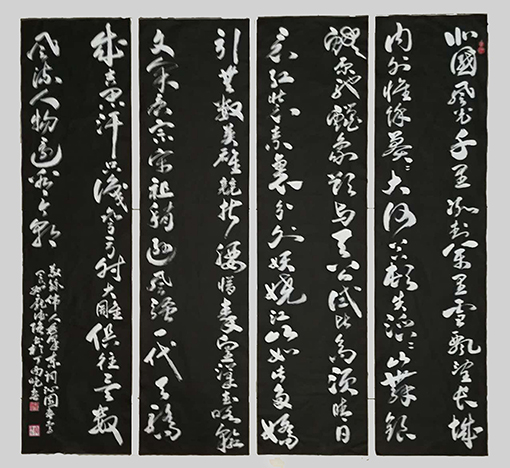 北國风光千里冰封万里雪飘望长城
内外惟馀莽々大河上下顿失滔々山舞银
蛇原驰蜡象欲与天公试比高须晴日
看红装素裹分外妖娆江山如此多娇
引无数英雄竞折腰惜秦皇汉武略输
文采唐宗宋祖稍逊风骚一代天骄
成吉思汗只识弯弓射大雕俱往矣数
风流人物还看今朝
敬录伟人毛泽东词沁园春雪
书于丁酉晚春